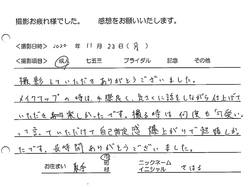 撮影お疲れ様でした。 感想をお願いいたします。
<撮影日時> 2020年 11月 23日 (月)
<撮影項目> 成人 七五三 ブライダル 記念 その他
撮影していただきありがとうございました。
メイクアップの時は、手際良く、気さくに話をしながら仕上げて
いただき 楽しかったです。撮る時は 何度も"可愛い"
って言っていただけて自己肯定感 爆上がりで 話しかっ
たです。長時間 ありがとうございました。
お住まい 市 町 村
ニックネーム
イニシャル